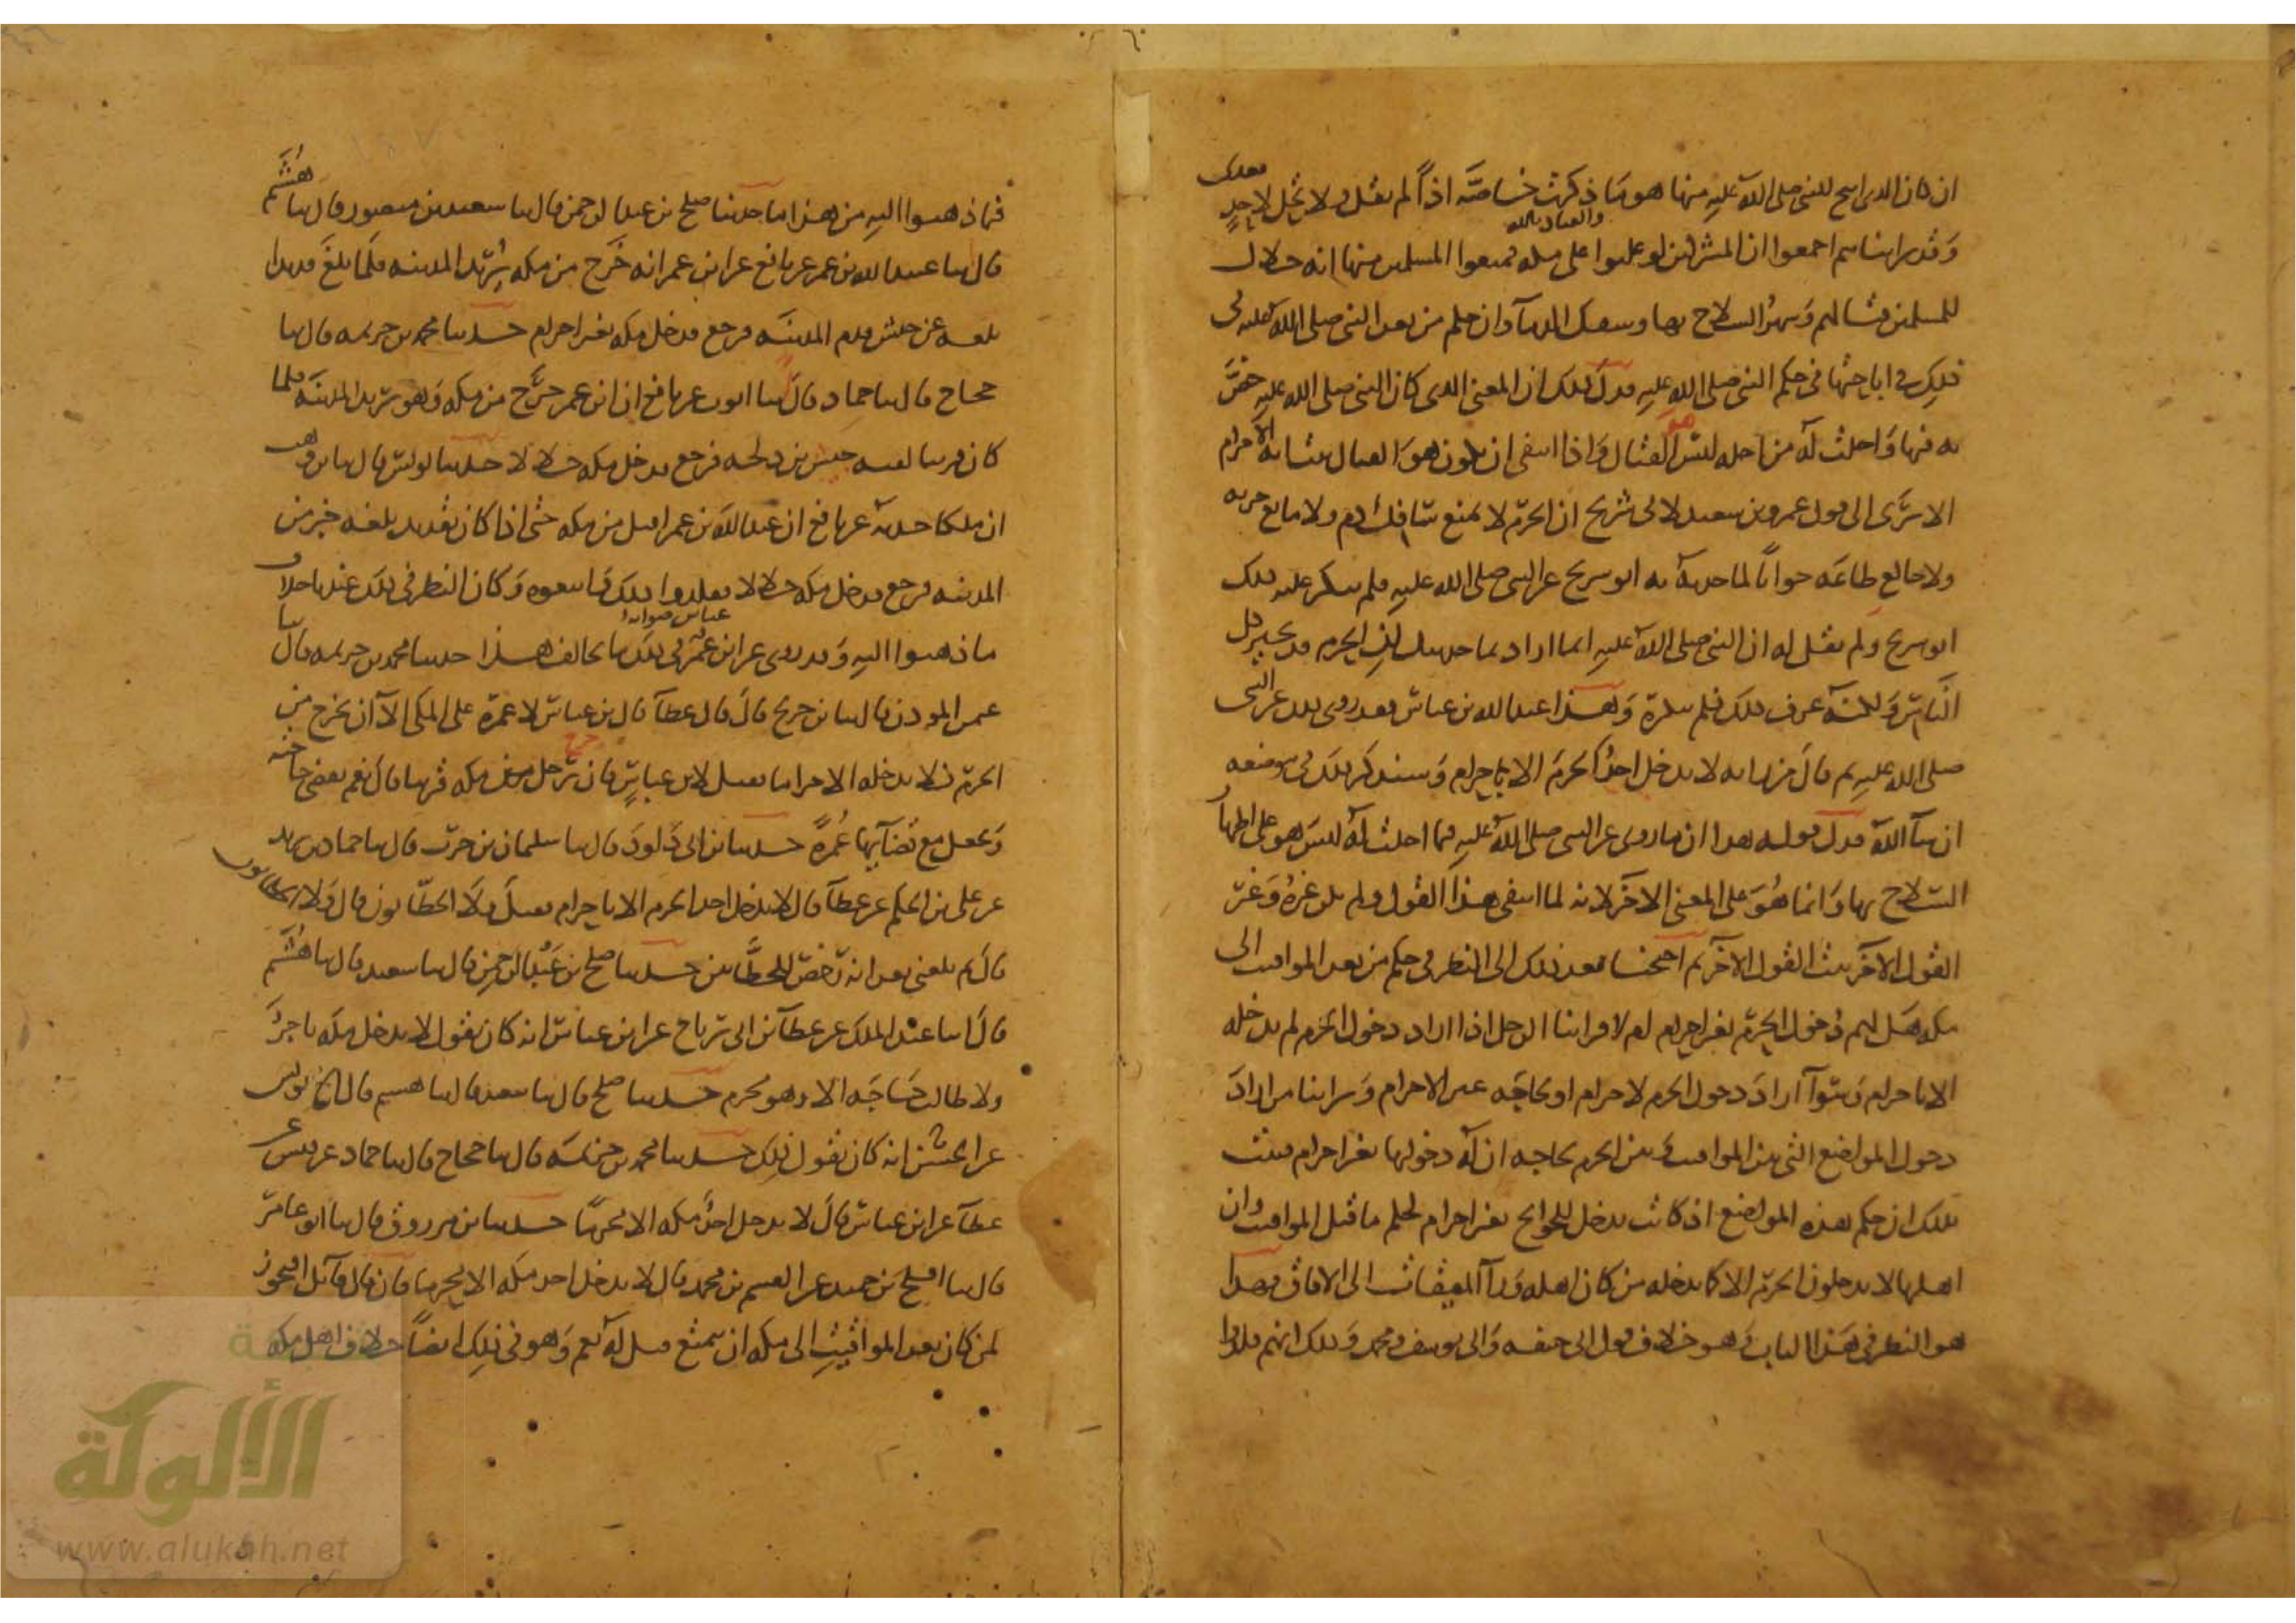 ان كان الذى ابيح للنبى صلى الله عليه منها هو ما ذكرت خاصة اذا لم يقل ولا تحل لاحد بعدى
وقد راينا هم اجمعوا ان المشركين لو غلبوا والعياذ بالله على مكه فمنعوا المسلمين منها انه حلال
للمسلمين قتالهم وشهر السلاح بها وسفك الدماء وان حكم من بعد النبى صلى الله عليه فى
ذلك فى اباحتها فى حكم النبى صلى الله عليه فدل ذلك ان المعنى الذى كان النبى صلى الله عليه خص
به فيها واحلت له من اجله ليس هو القتال واذا انتفى ان يكون هو القتال ثبت انه الاحرام
الا ترى الى قول عمرو بن سعيد لابى شريح ان الحرم لا يمنع سافك دم ولا مانع خربه
ولا خالع طاعه جوابا لما حدثه به ابو شريح عن النبى صلى الله عليه فلم ينكر عليه ذلك
ابو شريح ولم يقل له ان النبى صلى الله عليه انما اراد بما حدثتك ان الحرم قد يجير كل
الناس ولكنه عرف ذلك فلم ينكره وهذا عبد الله بن عباس فقد روى ذلك عن النبى
صلى الله عليه ثم قال من رايه لا يدخل احد الحرم الا باحرام وسنذكر ذلك فى موضعه
ان شا الله فدل قوله هذا ان ما روى عن النبى صلى الله عليه فيما احلت له ليس هو على اظهار
السلاح بها وانما هو على المعنى الاخر لانه لما انتفى هذا القول ولم يكن غيره وغير
القول الاخر ثبت القول الاخر ثم احتجنا بعد ذلك الى النظر فى حكم من بعد المواقيت الى
مكه هل لهم دخول الحرم بغير احرام ام لا فراينا الرجل اذا اراد دخول الحرم لم يدخله
الا باحرام وسوآ اراد دخول الحرم لاحرام او لحاجه غير الاحرام وراينا من اراد
دخول المواضع التى بين المواقيت وبين الحرم لحاجه ان له دخولها بغير احرام فثبت
بذلك ان حكم هذه المواضع اذ كانت تدخل للحوائج بغير احرام كحكم ما قبل المواقيت وان
اهلها لا يدخلون الحرم الا كما يدخله من كان اهله ورآ المواقيت الى الافاق فهذا
هو النظر فى هذا الباب وهو خلاف قول ابى حنيفه وابى يوسف ومحمد وذلك انهم قلدوا
فيما ذهبوا اليه من هذا ما حدثنا صلح بن عبد الرحمن قال ثنا سعيد بن منصور قال ثنا هشيم
قال ثنا عبيد الله بن عمر عن نافع عن ابن عمر انه خرج من مكه يريد المدينه فلما بلغ قديدا
بلغه عن جيش قدم المدينه فرجع فدخل مكه بغير احرام حدثنا محمد بن خزيمه قال ثنا
حجاج قال ثنا حماد قال ثنا ايوب عن نافع ان ابن عمر خرج من مكه وهو يريد المدينه فلما
كان قريبا لقيه جيش بن دلجه فرجع فدخل مكه حلالا حدثنا يونس قال ثنا بن وهب
ان ملكا حدثه عن نافع ان عبد الله بن عمر اقبل من مكه حتى اذا كان بقديد بلغه خبر من
المدينه فرجع فدخل مكه حلالا فقلدوا ذلك واتبعوه وكان النظر فى ذلك عندنا خلاف
ما ذهبوا اليه وقد روى عن ابن عباس فى ذلك ما يخالف هذا حدثنا محمد بن خزيمه قال ثنا
عثمن الموذن قال ثنا بن جريج قال قال عطآ قال بن عباس لا عمرة على المكى الا ان يخرج من
الحرم فلا يدخله الا حراما فقيل لابن عباس فان خرج رجل من مكه قريبا قال نعم يقضى حاجته
ويجعل مع قضآيها عمرة حدثنا بن ابى داود قال ثنا سليمان بن حرب قال ثنا حماد بن زيد
عن على بن الحكم عن عطآ قال لا يدخل احد الحرم الا باحرام فقيل ولا الحطابون قال ولا الحطابون
قال ثم بلغنى بعد انه رخص للحطابين حدثنا صلح بن عبد الرحمن قال ثنا سعيد قال ثنا هشيم
قال انا عبد الملك عن عطآ بن ابى رباح عن ابن عباس انه كان يقول لا يدخل مكه تاجر
ولا طالب حاجه الا وهو محرم حدثنا صلح قال ثنا سعيد قال ثنا هشيم قال انا يونس
عن الحسن انه كان يقول ذلك حدثنا محمد بن خزيمه قال ثنا حجاج قال ثنا حماد عن قيس عن
عطآ عن ابن عباس قال لا يدخل احد مكه الا محرما حدثنا بن مرزوق قال ثنا ابو عامر
قال ثنا افلح بن حميد عن القسم بن محمد قال لا يدخل احد مكه الا محرما فان قال قآئل افيجوز
لمن كان بعد المواقيت الى مكه ان يتمتع قيل له نعم وهو فى ذلك ايضا خلاف اهل مكه
الألوكة
www.alukah.net